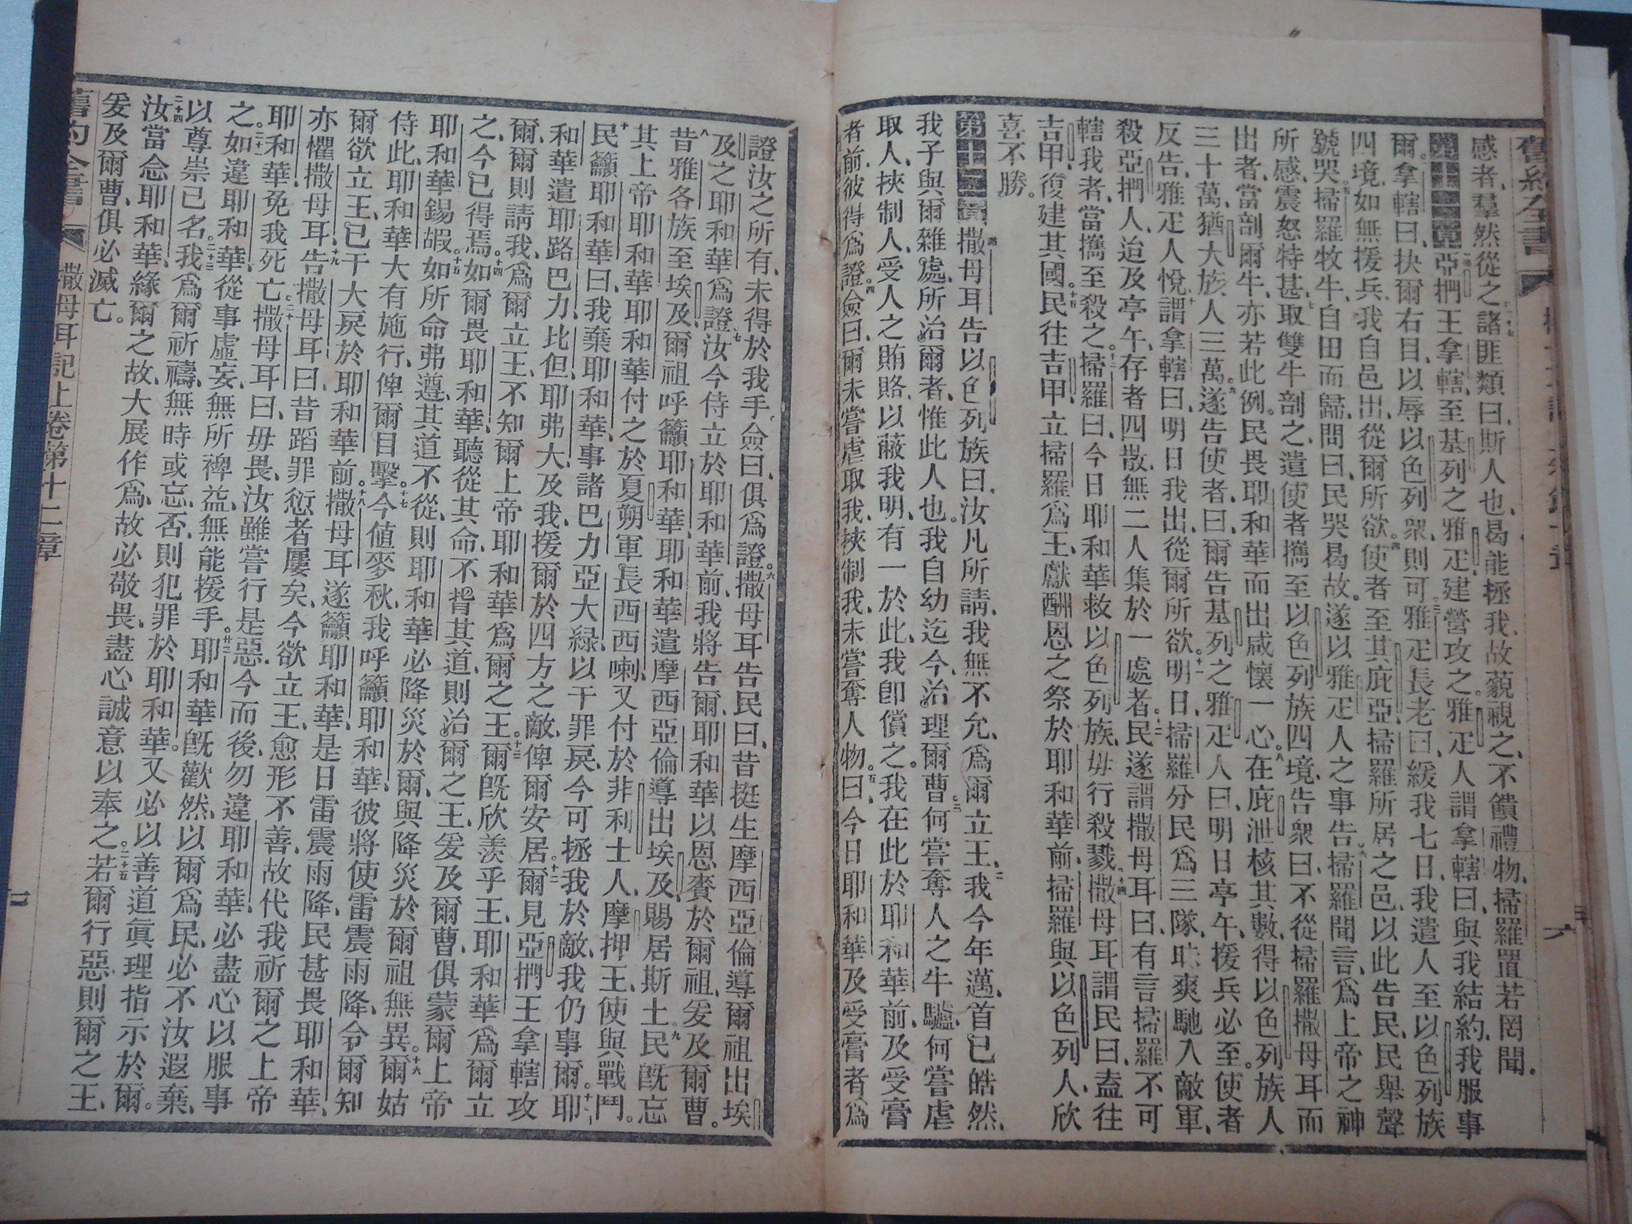 舊約全書
感者、羣然從之、諸匪類曰、斯人也、曷能拯我、故藐視之、不饋禮物、掃羅置若罔聞。
第十一章 亞捫王拿轄、至基列之雅疋、建營攻之、雅疋人謂拿轄曰、與我結約、我服事
爾。拿轄曰、抉爾右目、以辱以色列衆則可、雅疋長老曰、緩我七日、我遣人至以色列族
四境、如無援兵、我自邑出、從爾所欲。使者至其庇亞、掃羅所居之邑、以此告民、民舉聲
號哭、掃羅牧牛、自田而歸、問曰、民哭曷故。遂以雅疋人之事告、掃羅聞言、爲上帝之神
所感、震怒特甚、取雙牛剖之、遣使者攜至以色列族四境、告衆曰、不從掃羅撒母耳而
出者、當剖爾牛、亦若此例。民畏耶和華而出、咸懷一心、在庇泄核其數、得以色列族人
三十萬、猶大族人三萬、遂告使者曰、爾告基列之雅疋人曰、明日亭午、援兵必至。使者
反告、雅疋人悅、謂拿轄曰、明日我出、從爾所欲、明日掃羅分民爲三隊、昧爽馳入敵軍、
殺亞捫人、迨及亭午、存者四散、無二人集於一處者、民遂謂撒母耳曰、有言掃羅不可
轄我者、當攜至殺之、掃羅曰、今日耶和華救以色列族、毋行殺戮、撒母耳謂民曰、盍往
吉甲、復建其國、民往吉甲、立掃羅爲王、獻酬恩之祭於耶和華前、掃羅與以色列人、欣
喜不勝。
第十二章 撒母耳告以色列族曰、汝凡所請、我無不允、爲爾立王、我今年邁、首已皓然、
我子與爾雜處、所治爾者、惟此人也、我自幼迄今、治理爾曹、何嘗奪人之牛驢、何嘗虐
取人、挾制人、受人之賄賂、以蔽我明、有一於此、我卽償之、我在此於耶和華前、及受膏
者前、彼得爲證、僉曰、爾未嘗虐取我、挾制我、未嘗奪人物、曰、今日耶和華及受膏者、爲
證汝之所有、未得於我手。僉曰、俱爲證。撒母耳告民曰、昔挺生摩西亞倫、導爾祖出埃
及之耶和華爲證、汝今侍立於耶和華前、我將告爾、耶和華以恩賚於爾祖、爰及爾曹。
昔雅各族至埃及、爾祖呼籲耶和華、耶和華遣摩西亞倫導出埃及、賜居斯土、民旣忘
其上帝耶和華、耶和華付之於夏朔軍長西西喇、又付於非利士人、摩押王、使與戰鬥。
民籲耶和華曰、我棄耶和華、事諸巴力亞大綠、以干罪戾、今可拯我於敵、我仍事爾。耶
和華遣耶路巴力、比但、耶弗大、及我援爾於四方之敵、俾爾安居、爾見亞捫王拿轄攻
爾、爾則請我、爲爾立王、不知爾上帝耶和華爲爾之王。爾旣欣羨乎王、耶和華爲爾立
之、今已得焉。如爾畏耶和華、聽從其命、不背其道、則治爾之王、爰及爾曹、俱蒙爾上帝
耶和華錫嘏。如所命弗遵、其道不從、則耶和華必降災於爾、與降災於爾祖無異。爾姑
侍此、耶和華大有施行、俾爾目擊。今值麥秋、我呼籲耶和華、彼將使雷震雨降、令爾知
爾欲立王、已干大戾於耶和華前。撒母耳遂籲耶和華、是日雷震雨降、民甚畏耶和華、
亦懼撒母耳、告撒母耳曰、昔蹈罪愆者屢矣、今欲立王、愈形不善、故代我祈爾之上帝
耶和華、免我死亡。撒母耳曰、毋畏、汝雖嘗行是惡、今而後、勿違耶和華、必盡心以服事
之。如違耶和華、從事虛妄、無所裨益、無能援手、耶和華旣歡然以爾爲民、必不汝遐棄、
以尊崇己名、我爲爾祈禱、無時或忘、否則犯罪於耶和華。又必以善道眞理、指示於爾。
汝當念耶和華緣爾之故、大展作爲、故必敬畏、盡心誠意以奉之。若爾行惡、則爾之王、
爰及爾曹、俱必滅亡。
舊約全書 撒母耳記上卷第十二章 七